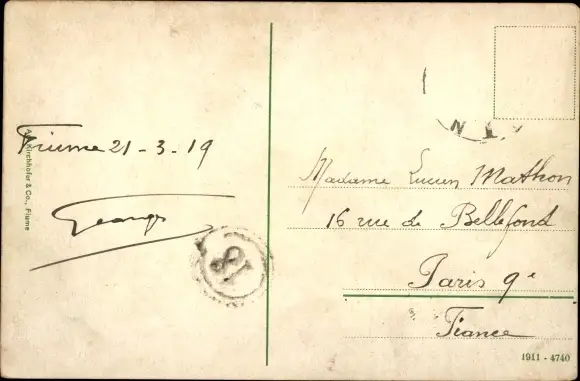 Fiume 21-3-19
Georges
A. Kirchhofer & Co., Fiume
18
Madame Lucien Mathon
16 rue de Bellefond
Paris 9e
France
1911 - 4740